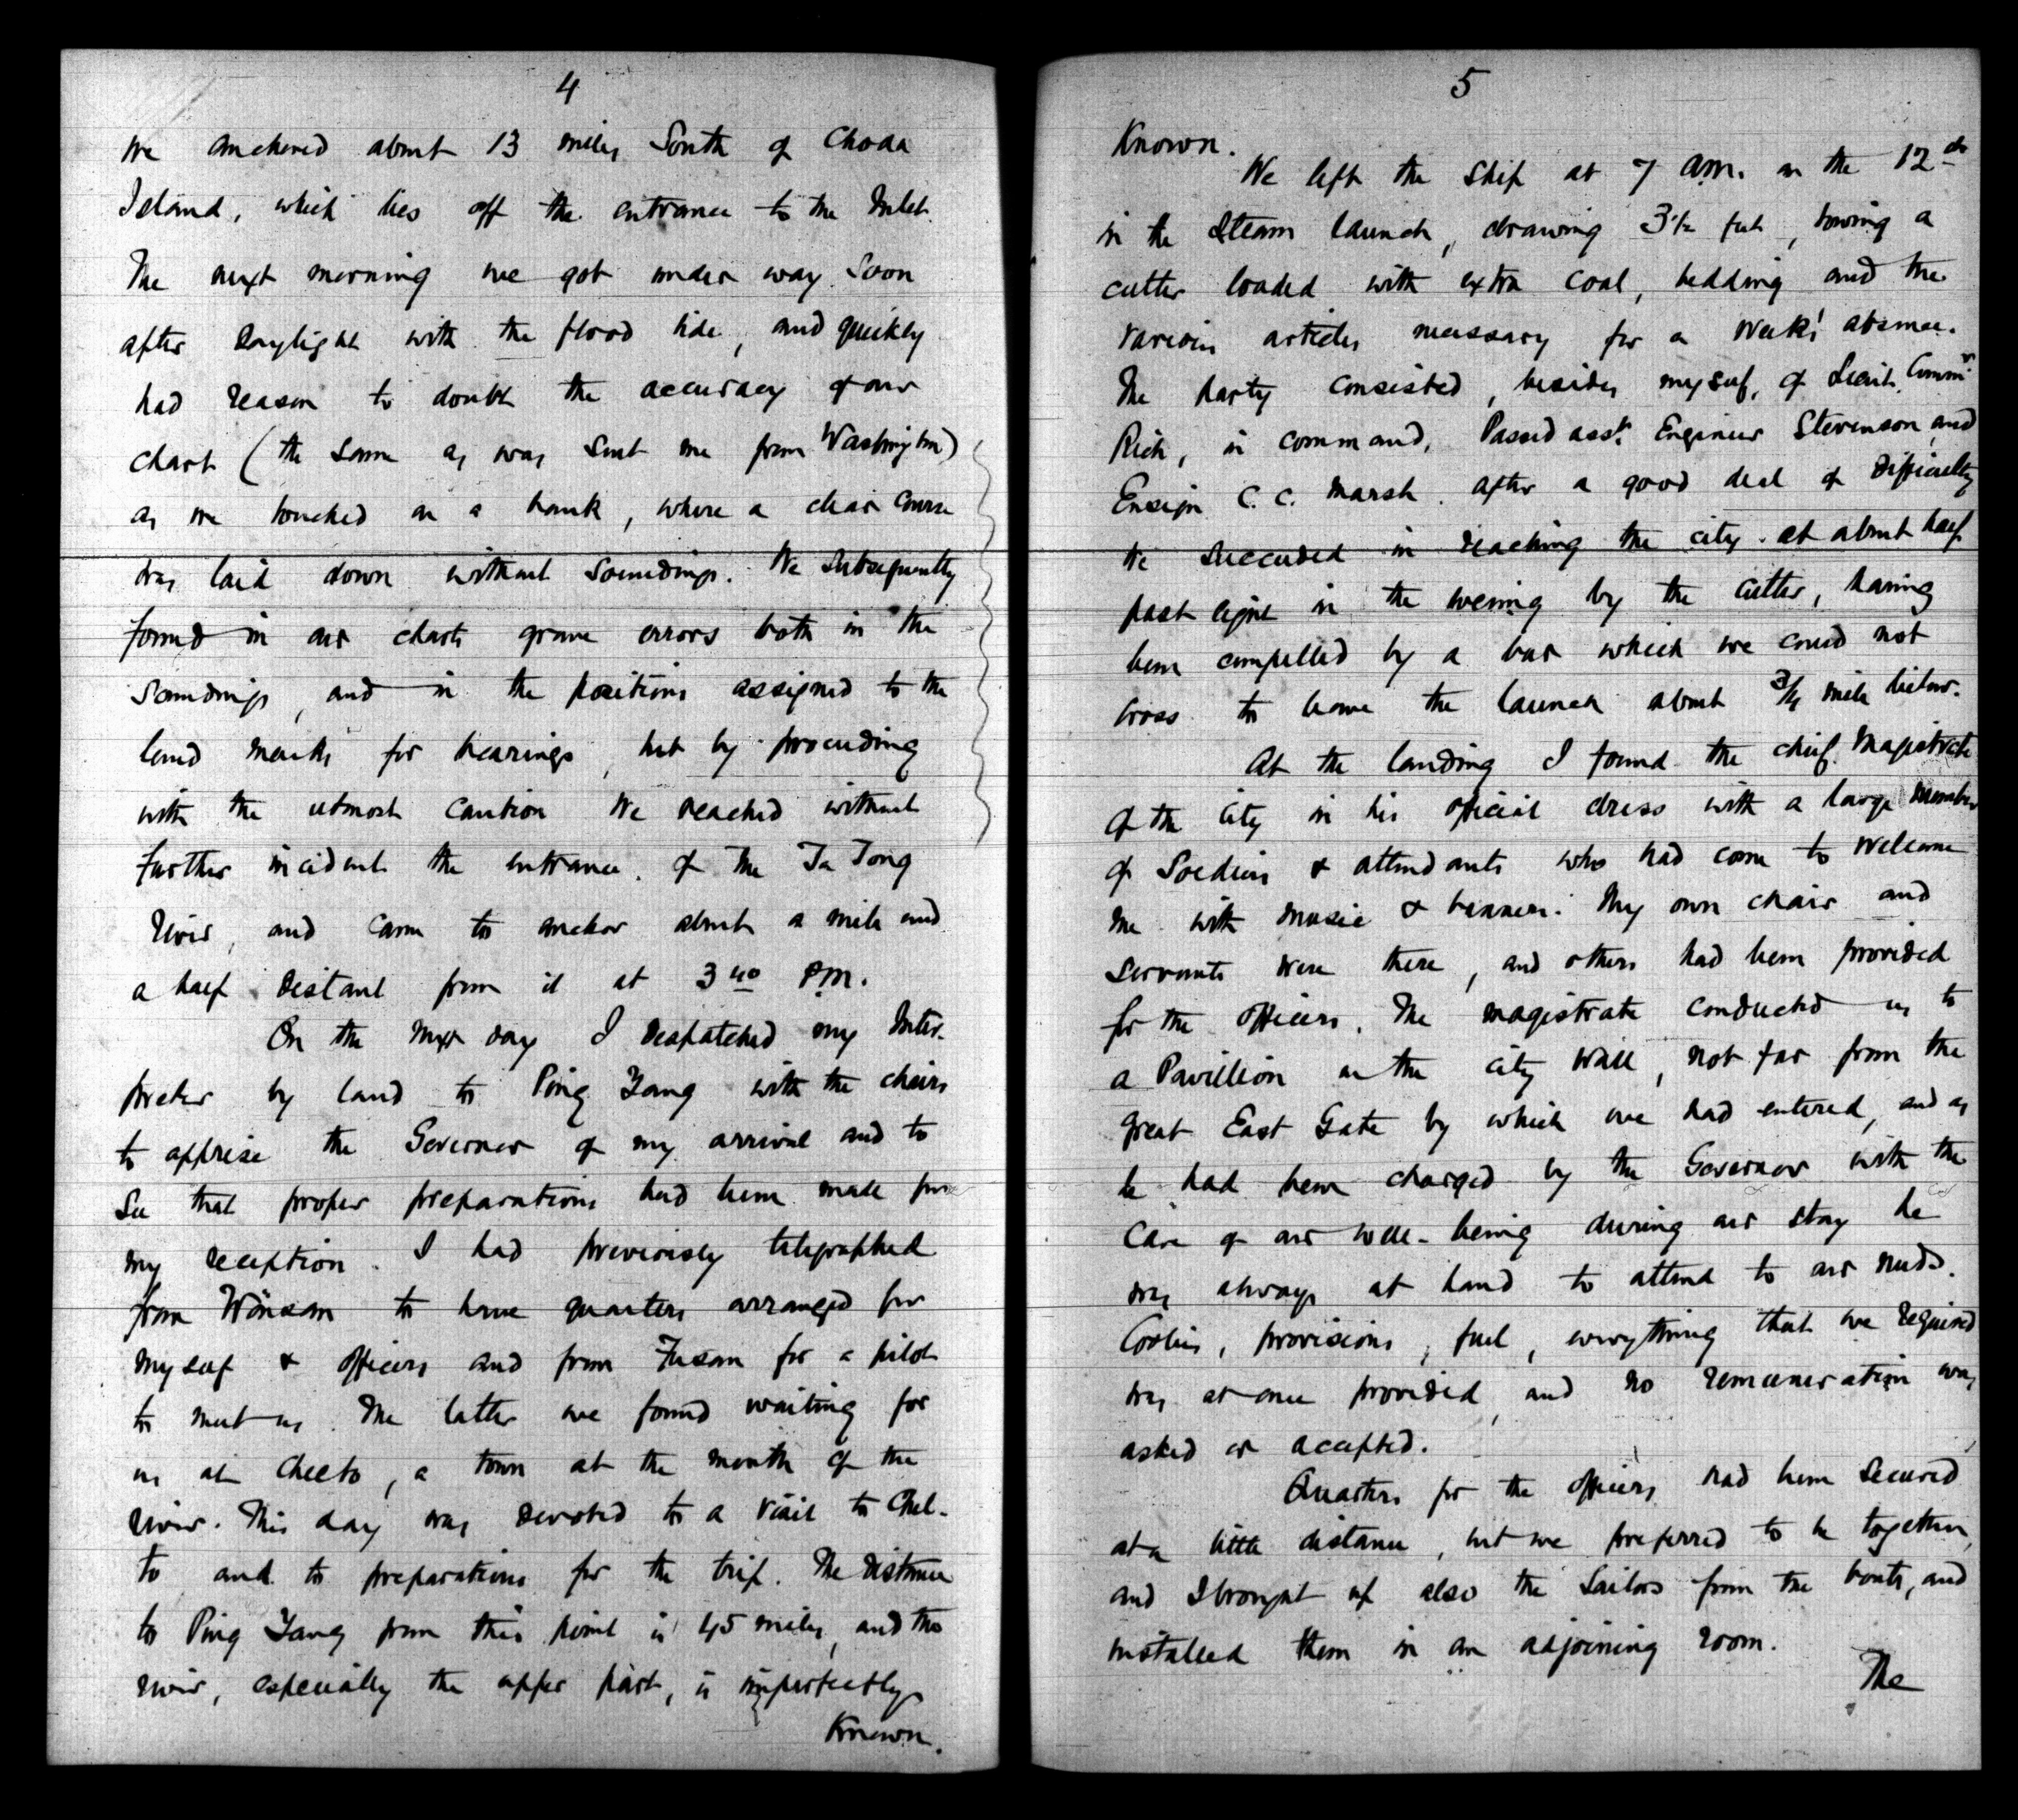 4
We anchored about 13 miles South of Choda
Island, which lies off the entrance to the Inlet.
The next morning we got under way soon
after daylight with the flood tide, and quickly
had reason to doubt the accuracy of our
chart (the same as was sent me from Washington)
as we touched on a bank, where a clear course
was laid down without soundings. We subsequently
found in our charts grave errors both in the
soundings, and in the positions assigned to the
land marks for bearings, but by proceeding
with the utmost caution we reached without
further incident the entrance of the Ta Tong
River, and came to anchor about a mile and
a half distant from it at 3 40 P.M.
On the next day I despatched my Inter-
preter by land to Ping Yang with the chairs
to apprise the Governor of my arrival and to
see that proper preparations had been made for
my reception. I had previously telegraphed
from Wönsan to have quarters arranged for
myself & officers and from Fusan for a pilot
to meet us. The latter we found waiting for
us at Cheeto, a town at the mouth of the
river. This day was devoted to a visit to Chel-
to and to preparations for the trip. The distance
to Ping Yang from this point is 45 miles, and the
river, especially the upper part, is imperfectly
Known.
5
Known.
We left the ship at 7 a.m. on the 12th
in the steam launch, drawing 3 1/2 feet, towing a
cutter loaded with extra coal, bedding and the
various articles necessary for a week's absence.
The party consisted, besides myself, of Lieut. Commr
Rich, in command, Passed asst. Engineer Stevenson and
Ensign C. C. Marsh. After a good deal of difficulty
we succeeded in reaching the city at about half
past eight in the evening by the cutter, having
been compelled by a bar which we could not
cross to leave the launch about 3/4 mile below.
At the landing I found the chief Magistrate
of the City in his official dress with a large number
of soldiers & attendants who had come to welcome
me with music & banners. My own chair and
servants were there, and others had been provided
for the officers. The magistrate conducted us to
a Pavillion on the city wall, not far from the
great East Gate by which we had entered, and as
he had been charged by the Governor with the
care of our well-being during our stay he
was always at hand to attend to our needs.
Coolies, provisions, fuel, everything that we required
was at once provided, and no remuneration was
asked or accepted.
Quarters for the officers had been secured
at a little distance, but we preferred to be together,
and I brought up also the sailors from the boats, and
installed them in an adjoining room.
The